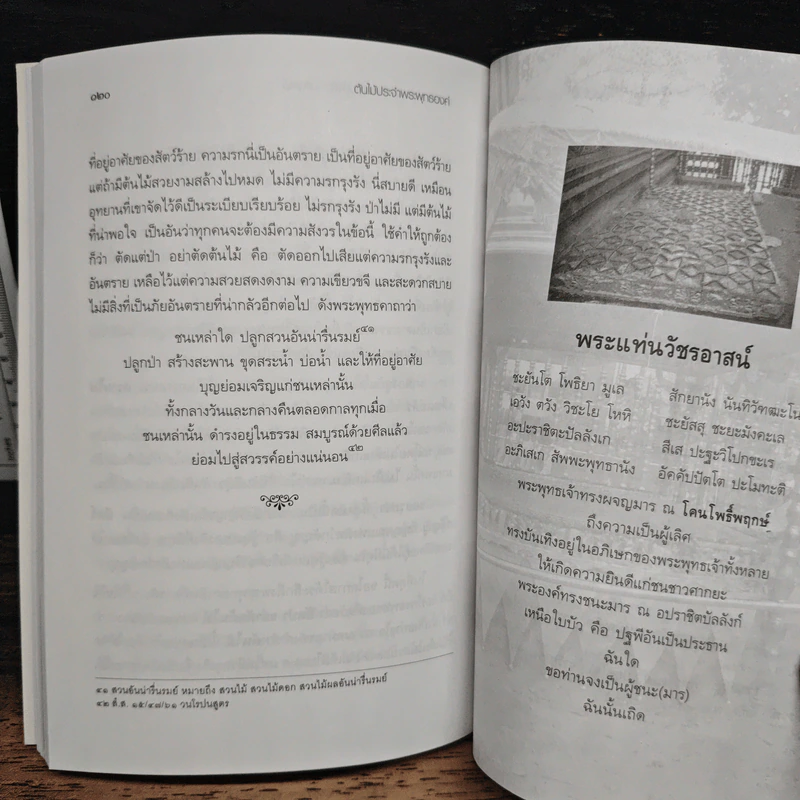 ๑๒๐
ต้นไม้ประจำพระพุทธองค์
ที่อยู่อาศัยของสัตว์ร้าย ความรกนี่เป็นอันตราย เป็นที่อยู่อาศัยของสัตว์ร้าย
แต่ถ้ามีต้นไม้สวยงามสล้างไปหมด ไม่มีความรกรุงรัง นี่สบายดี เหมือน
อุทยานที่เขาจัดไว้ดีเป็นระเบียบเรียบร้อย ไม่รกรุงรัง ป่าไม่มี แต่มีต้นไม้
ที่น่าพอใจ เป็นอันว่าทุกคนจะต้องมีความสังวรในข้อนี้ ใช้คำให้ถูกต้อง
ก็ว่า ตัดแต่ป่า อย่าตัดต้นไม้ คือ ตัดออกไปเสียแต่ความรกรุงรังและ
อันตราย เหลือไว้แต่ความสวยสดงดงาม ความเขียวขจี และสะดวกสบาย
ไม่มีสิ่งที่เป็นภัยอันตรายที่น่ากลัวอีกต่อไป ดังพระพุทธคาถาว่า
ชนเหล่าใด ปลูกสวนอันน่ารื่นรมย์๔๑
ปลูกป่า สร้างสะพาน ขุดสระน้ำ บ่อน้ำ และให้ที่อยู่อาศัย
บุญย่อมเจริญแก่ชนเหล่านั้น
ทั้งกลางวันและกลางคืนตลอดกาลทุกเมื่อ
ชนเหล่านั้น ดำรงอยู่ในธรรม สมบูรณ์ด้วยศีลแล้ว
ย่อมไปสู่สวรรค์อย่างแน่นอน๔๒
๔๑ สวนอันน่ารื่นรมย์ หมายถึง สวนไม้ สวนไม้ดอก สวนไม้ผลอันน่ารื่นรมย์
๔๒ สํ.ส. ๑๕/๔๘/๖๑ วนโรปนสูตร
พระแท่นวัชรอาสน์
ชะยันโต โพธิยา มูเล สักยานัง นันทิวัฑฒะโน
เอวัง ตวัง วิชะโย โหหิ ชะยัสสุ ชะยะมังคะเล
อะปะราชิตะปัลลังเก สีเส ปะฐะวิโปกขะเร
อะภิเสเก สัพพะพุทธานัง อัคคัปปัตโต ปะโมทะติ
พระพุทธเจ้าทรงผจญมาร ณ โคนโพธิ์พฤกษ์
ถึงความเป็นผู้เลิศ
ทรงบันเทิงอยู่ในอภิเษกของพระพุทธเจ้าทั้งหลาย
ให้เกิดความยินดีแก่ชนชาวศากยะ
พระองค์ทรงชนะมาร ณ อปราชิตบัลลังก์
เหนือใบบัว คือ ปฐพีอันเป็นประธาน
ฉันใด
ขอท่านจงเป็นผู้ชนะ(มาร)
ฉันนั้นเถิด